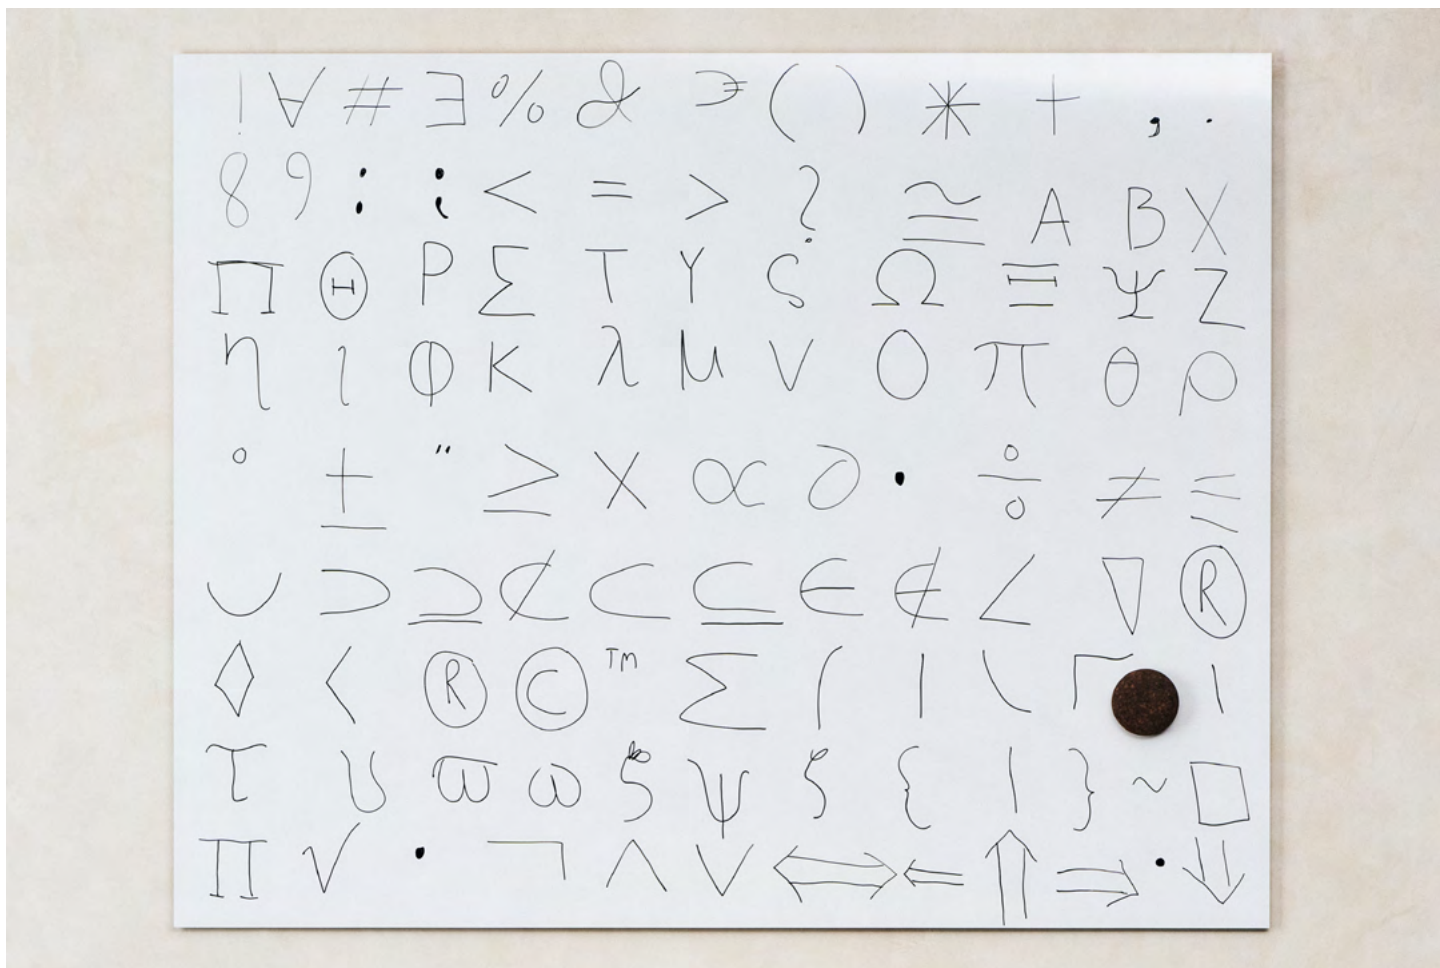 ! ∀ # ∃ % & ∋ ( ) * + , .
8 9 : ; < = > ? ≅ Α Β Χ
Π Θ Ρ Σ Τ Υ ς Ω Ξ Ψ Ζ
η ι φ κ λ μ ν ο π θ ρ
° ± ″ ≥ × ∝ ∂ • ÷ ≠ ≡
∪ ⊃ ⊇ ⊄ ⊂ ⊆ ∈ ∉ ∠ ∇ ®
◊ 〈 ® © ™ ∑ ⎛ ⎜ ⎝ ⎡ ⎢
τ υ ϖ ω ξ ψ ζ { | } ~ □
∏ √ ⋅ ¬ ∧ ∨ ⇔ ⇐ ⇑ ⇒ . ⇓